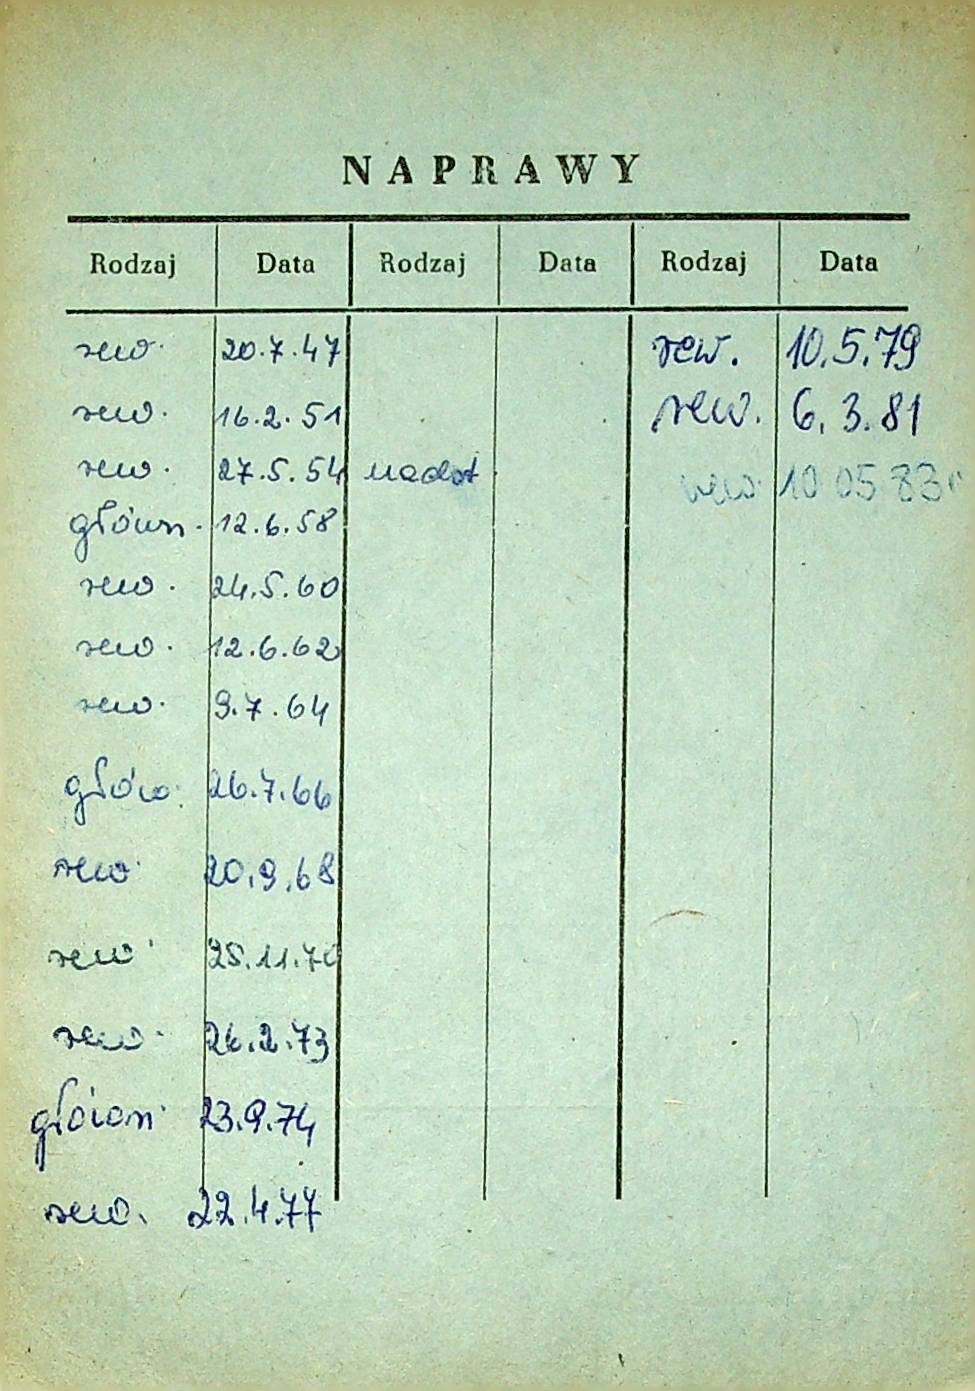 NAPRAWY
Rodzaj Data Rodzaj Data Rodzaj Data
rew. 20.7.47 rew. 10.5.79
rew. 16.2.51 rew. 6.3.81
rew. 27.5.54 rew. 10 05 83r
główn. 12.6.58
rew. 24.5.60
rew. 12.6.62
rew. 9.7.64
główn. 26.7.66
rew. 20.9.68
rew. 25.11.70
rew. 26.2.73
główn. 23.9.74
rew. 22.4.77